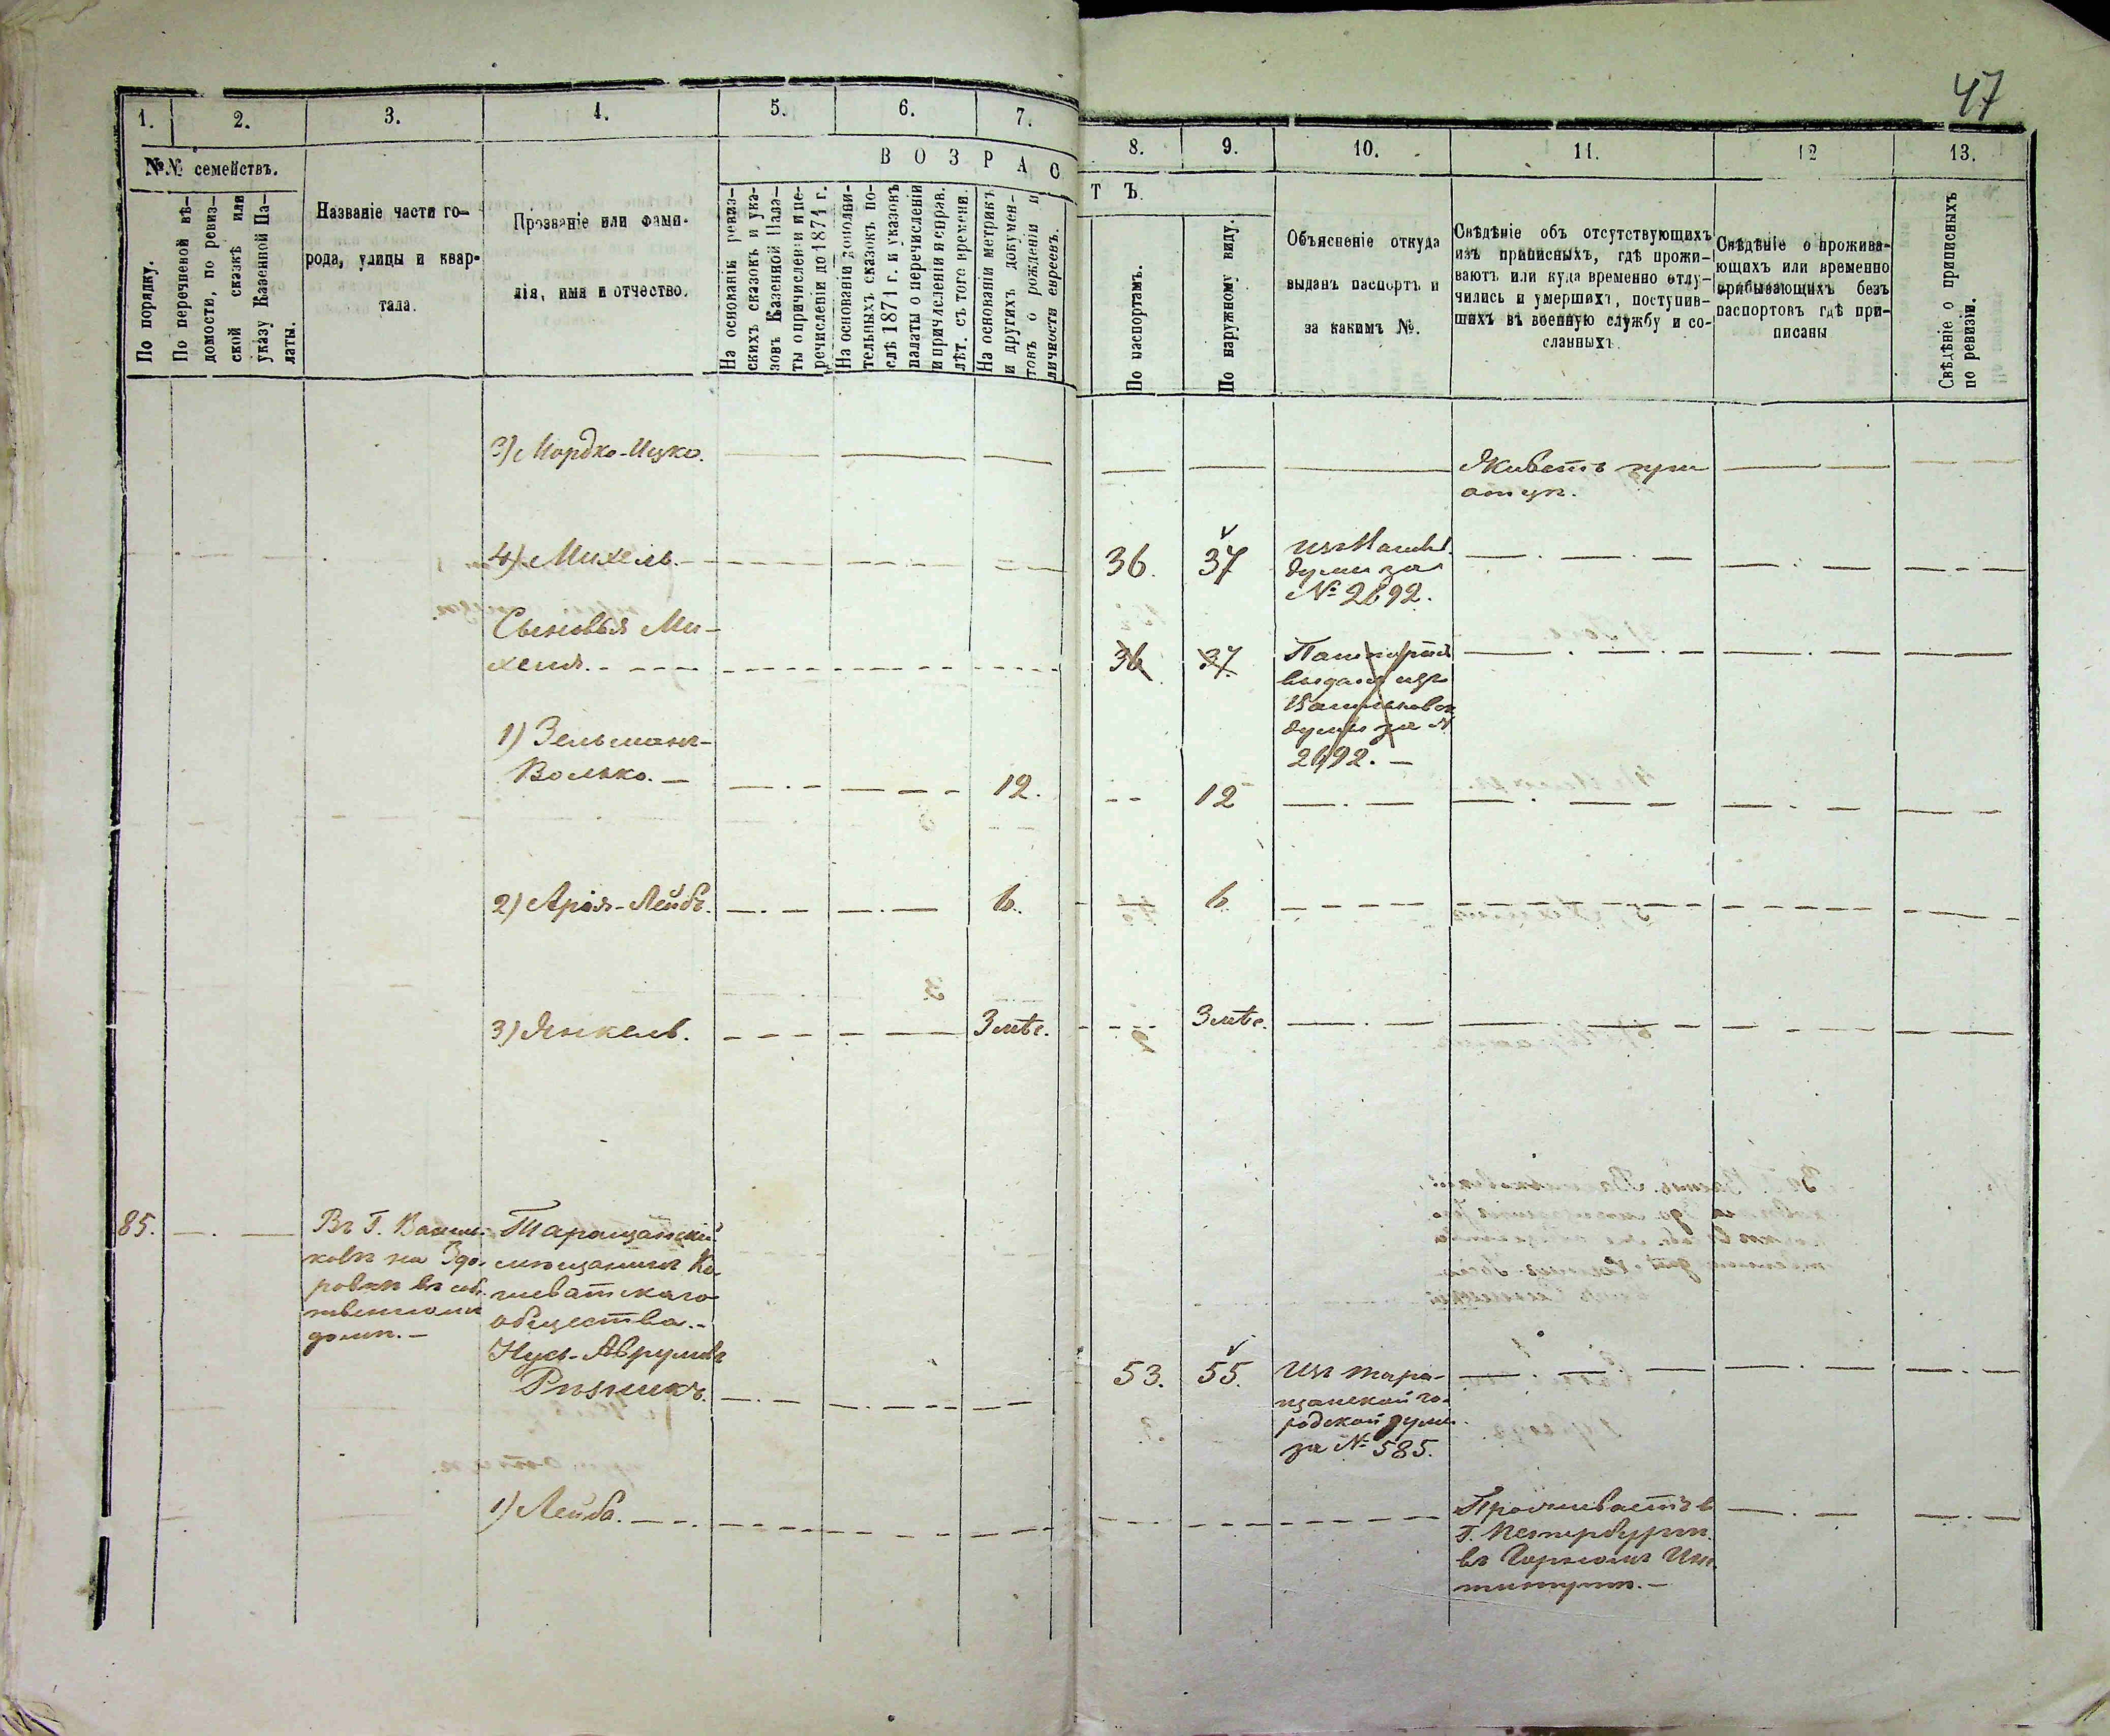 47
1. 2. 3. 4. 5. 6. 7. 8. 9. 10. 11. 12 13.
№№ семействъ.
По порядку.
По перечневой вѣ-
домости, по ревиз-
ской сказкѣ или
указу Казенной Па-
латы.
Названіе части го-
рода, улицы и квар-
тала.
Прозваніе или фами-
лія, имя и отчество.
ВОЗРАСТЪ.
На основаніи ревиз-
скихъ сказокъ и ука-
зовъ Казенной Пала-
ты о причисленіи и пе-
речисленіи до 1871 г.
На основаніи дополни-
тельныхъ сказокъ по-
слѣ 1871 г. и указовъ
палаты о перечисленіи
и причисленіи и справ.
лѣт. съ того времени.
На основаніи метрикъ
и другихъ докумен-
товъ о рожденіи и
личности евреевъ.
По паспортамъ.
По наружному виду.
Объясненіе откуда
выданъ паспортъ и
за какимъ №.
Свѣдѣніе объ отсутствующихъ
изъ приписныхъ, гдѣ прожи-
ваютъ или куда временно отлу-
чились и умершихъ, поступив-
шихъ въ военную службу и со-
сланныхъ.
Свѣдѣніе о прожива-
ющихъ или временно
прибывающихъ безъ
паспортовъ гдѣ при-
писаны
Свѣдѣніе о приписныхъ
по ревизіи.
3) Мордко-Ицко.
Живетъ при
отцѣ.
4) Михель.
36. 37
думы за
№ 2692.
Сыновья Ми-
хеля.
36 37.
Паспортъ
выданъ изъ
Васильковск
думы за №
2692.
1) Зельманъ-
Волько.
12. 12
2) Арія-Лейбъ.
6. 6
3) Янкель.
3 мѣс. 3 мѣс.
85.
Въ Г. Василь-
ковѣ на Здо-
ровкѣ въ соб-
ственномъ
домѣ.
Таращанскій
мѣщанинъ Ко-
шеватскаго
общества.
Нусь-Аврумовъ
Рѣзникъ.
53. 55.
Изъ Тара-
щанской го-
родской думы
за № 585.
1) Лейба.
Проживаетъ в
Г. Петербургѣ
въ Горномъ Инс
титутѣ.